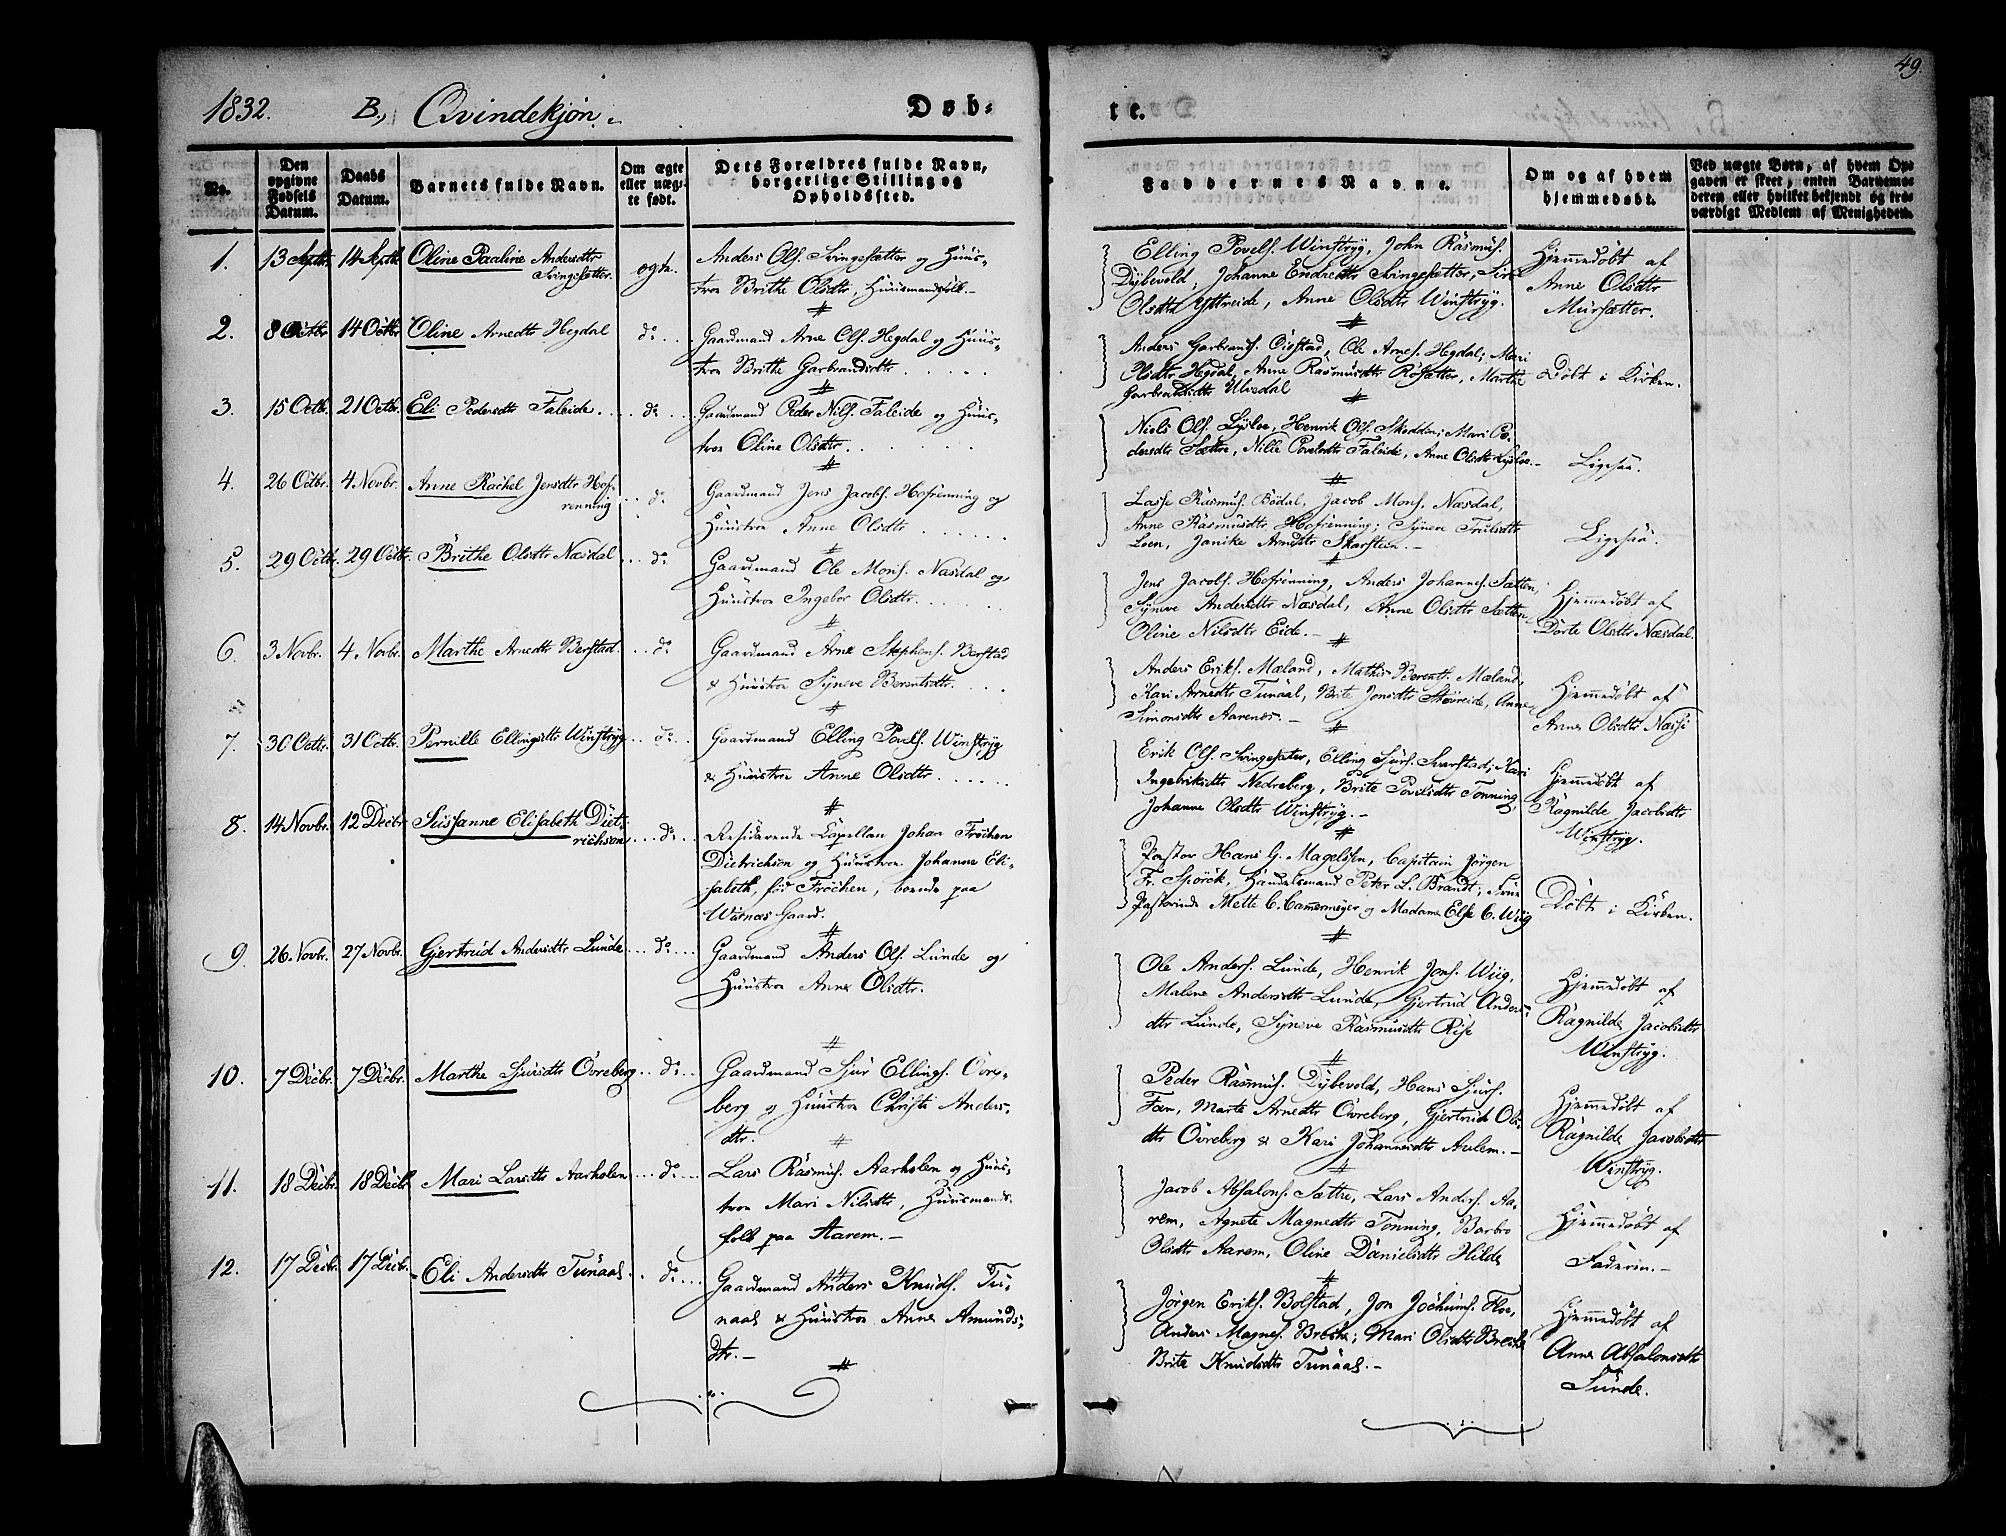 49.
1832. B., Qvindekjøn. Døb- te.
No. Den opgivne Fødsels Datum. Daabs Datum. Barnets fulde Navn. Om ægte eller uægte født. Dets Forældres fulde Navn, borgerlige Stilling og Opholdssted. Faddernes Navne. Om og af hvem hjemmedøbt. Ved uægte Børn, af hvem Opgaven er skeet, enten Barnemoderen eller hvilket bekjendt og troværdigt Medlem af Menigheden.
1. 13 Septb. 14 Septb. Oline Pauline Andersdtr Svingesætter. ægte. Anders Ols. Svingesætter og Huus-
troe Brithe Olsdtr, Huusmandsfolk.
Elling Povels. Winstryg, John Rasmus.
Dybevold, Johanne Endredtr Svingesætter, Siri
Olsdtr Yttreide, Anne Olsdtr Winstryg.
Hjemmedøbt af
Anne Olsdtr
Mursætter.
2. 8 Octbr. 14 Octbr. Oline Arnedtr Hegdal do. Gaardmand Arne Ols. Hegdal og Huus-
troe Brithe Garbrandsdtr.
Anders Garbrands. Ole Arnes. Hegdal; Mari
Olsdtr Hegdal, Anne Rasmusdtr Marthe
Garbrandsdtr Ulvedal
Døbt i Kirken.
3. 15 Octb. 21 Octb. Eli Pedersdtr Faleide do. Gaardmand Peder Nils. Faleide og Huus-
troe Oline Olsdtr.
Niels Ols. Henrik Ols. Skedden; Mari Pe-
dersdtr Sættre, Nille Povelsdtr Faleide, Anne Olsdtr
Ligesaa.
4. 26 Octbr. 4 Novbr. Anne Rachel Jensdtr Hof-
renning do. Gaardmand Jens Jacobs. Hofrenning og
Huustroe Anne Olsdtr
Lasse Rasmus. Bødal, Jacob Mons. Næsdal,
Anne Rasmusdtr Hofrenning; Syneve
Loen, Janike Arnesdtr Skarstein.
Ligesaa.
5. 29 Octb. 29 Octb. Brithe Olsdtr Næsdal do. Gaardmand Ole Mons. Næsdal og
Huustroe Ingebor Olsdtr.
Jens Jacobs. Hofrenning, Anders Johannes. Sætten,
Syneve Andersdtr Næsdal, Anne Olsdtr Sætten
Oline Nilsdtr Eide.
Hjemmedøbt af
Dorte Olsdtr Næsdal.
6. 3 Novbr. 4 Novbr. Marthe Arnedtr Berstad do. Gaardmand Arne Stephens. Berstad
& Huustroe Syneve Berentsdtr.
Anders Eriks. Mæland, Mathis Berents. Mæland,
Kari Arnedtr Tunaal, Brite Jonsdtr Anne
Simonsdtr Aarenes.
Hjemmedøbt af
Anne Olsdtr
7. 30 Octbr. 31 Octbr. Pernille Ellingsdtr Winstryg do. Gaardmand Elling Povels. Winstryg
& Huustroe Anne Olsdtr.
Erik Ols. Svingesæter, Elling Sjurs. Svarstad; Kari
Ingebriktsdtr Nedreberg, Brite Povelsdtr Tonning,
Johanne Olsdtr Winstryg.
Hjemmedøbt af
Ragnilde Jacobsdtr
Winstryg.
8. 14 Novbr. 12 Decbr. Susanne Elisabeth Diet-
richson do. Residerende Capellan Johan Frøchen
Dietrichson og Huustroe Johanne Eli-
sabeth, fød Frøchen, boende paa
Wisnes Gaard.
Pastor Hans G. Magelssen, Capitain Jørgen
Fr. Spørck, Handelsmand Peter L. Brandt, Frue
Pastorinde Mette C. Camermeyer og Madame Else C. Wiig
Døbt i Kirken.
9. 26 Novbr. 27 Novbr. Gjertrud Andersdtr Lunde do. Gaardmand Anders Ols. Lunde og
Huustroe Anne Olsdtr.
Ole Anders. Lunde, Henrik Jons. Wiig,
Malene Andersdtr Lunde, Gjertrud Anders-
dtr Lunde, Syneve Rasmusdtr Rise
Hjemmedøbt af
Ragnilde Jacobsdtr
Winstryg.
10. 7 Decbr. 7 Decbr. Marthe Sjursdtr Øvreberg do. Gaardmand Sjur Ellings. Øvre-
berg og Huustroe Christi Anders-
dtr.
Peder Rasmus. Dybevold, Hans Sjurs.
Fæn, Marte Arnedtr Øvreberg, Gjertrud Ols-
dtr Øvreberg & Kari Johannesdtr Aulem.
Hjemmedøbt af
Ragnilde Jacobsdtr
Winstryg.
11. 18 Decbr. 18 Decbr. Mari Larsdtr Aarholen do. Lars Rasmus. Aarholen og Huus-
troe Mari Nilsdtr, Huusmands-
folk paa Aarem.
Jacob Absalons. Sættre, Lars Anders. Aa-
rem, Agnete Magnedtr Tonning, Barbro
Olsdtr Aarem, Oline Danielsdtr Hilde
Hjemmedøbt af
Faderen.
12. 17 Decbr. 17 Decbr. Eli Andersdtr Tunaal do. Gaardmand Anders Knuds. Tu-
naal & Huustroe Anne Amunds-
dtr.
Jørgen Eriks. Bolstad, Jon Jochums. Flo,
Anders Magnes. Brække; Mari Olsdtr Brække
Brite Knudsdtr Tunaal.
Hjemmedøbt af
Anne Absalonsdtr
Sunde.